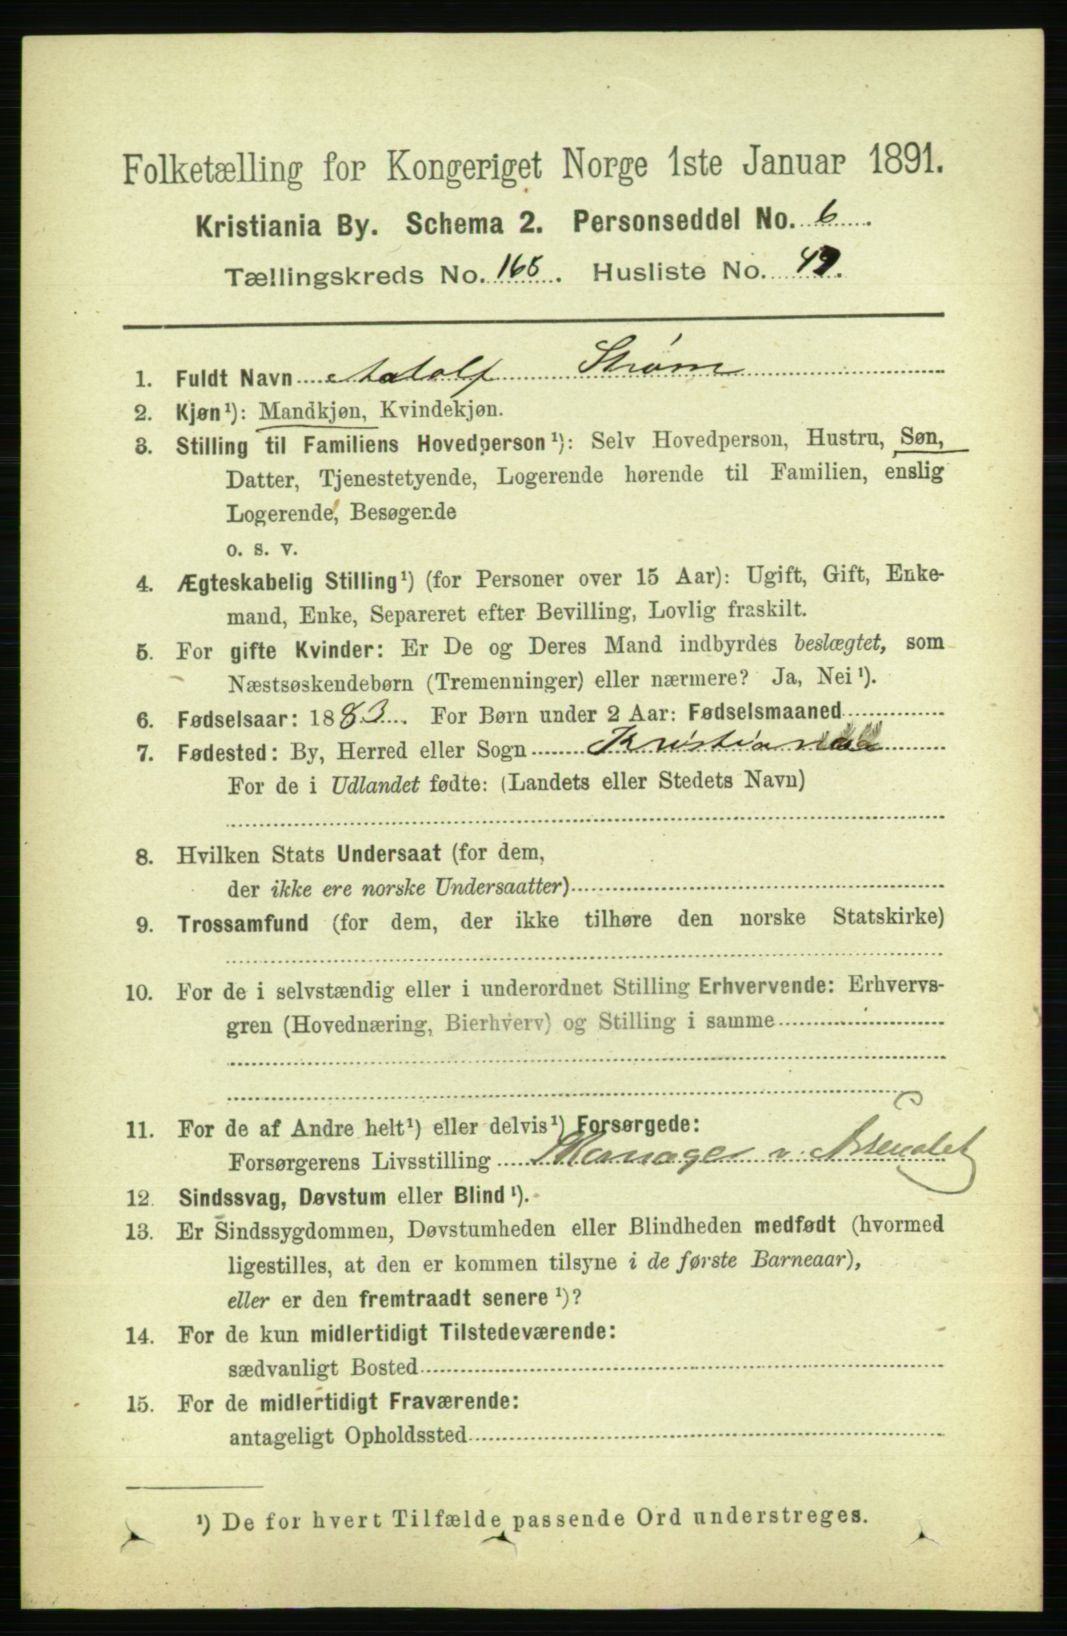 Folketælling for Kongeriget Norge 1ste Januar 1891.
Kristiania By. Schema 2. Personseddel No. 6.
Tællingskreds No. 165. Husliste No. 49.
1. Fuldt Navn Adolf Strøm
2. Kjøn¹): Mandkjøn, Kvindekjøn.
3. Stilling til Familiens Hovedperson¹): Selv Hovedperson, Hustru, Søn,
Datter, Tjenestetyende, Logerende hørende til Familien, enslig
Logerende, Besøgende
o. s. v.
4. Ægteskabelig Stilling¹) (for Personer over 15 Aar): Ugift, Gift, Enke-
mand, Enke, Separeret efter Bevilling, Lovlig fraskilt.
5. For gifte Kvinder: Er De og Deres Mand indbyrdes beslægtet, som
Næstsøskendebørn (Tremenninger) eller nærmere? Ja, Nei¹).
6. Fødselsaar: 1883. For Børn under 2 Aar: Fødselsmaaned
7. Fødested: By, Herred eller Sogn Kristiania
For de i Udlandet fødte: (Landets eller Stedets Navn)
8. Hvilken Stats Undersaat (for dem,
der ikke ere norske Undersaatter)
9. Trossamfund (for dem, der ikke tilhøre den norske Statskirke)
10. For de i selvstændig eller i underordnet Stilling Erhvervende: Erhvervs-
gren (Hovednæring, Bierhverv) og Stilling i samme
11. For de af Andre helt¹) eller delvis¹) Forsørgede:
Forsørgerens Livsstilling v. Arsenalet
12. Sindssvag, Døvstum eller Blind¹).
13. Er Sindssygdommen, Døvstumheden eller Blindheden medfødt (hvormed
ligestilles, at den er kommen tilsyne i de første Barneaar),
eller er den fremtraadt senere¹)?
14. For de kun midlertidigt Tilstedeværende:
sædvanligt Bosted
15. For de midlertidigt Fraværende:
antageligt Opholdssted
¹) De for hvert Tilfælde passende Ord understreges.